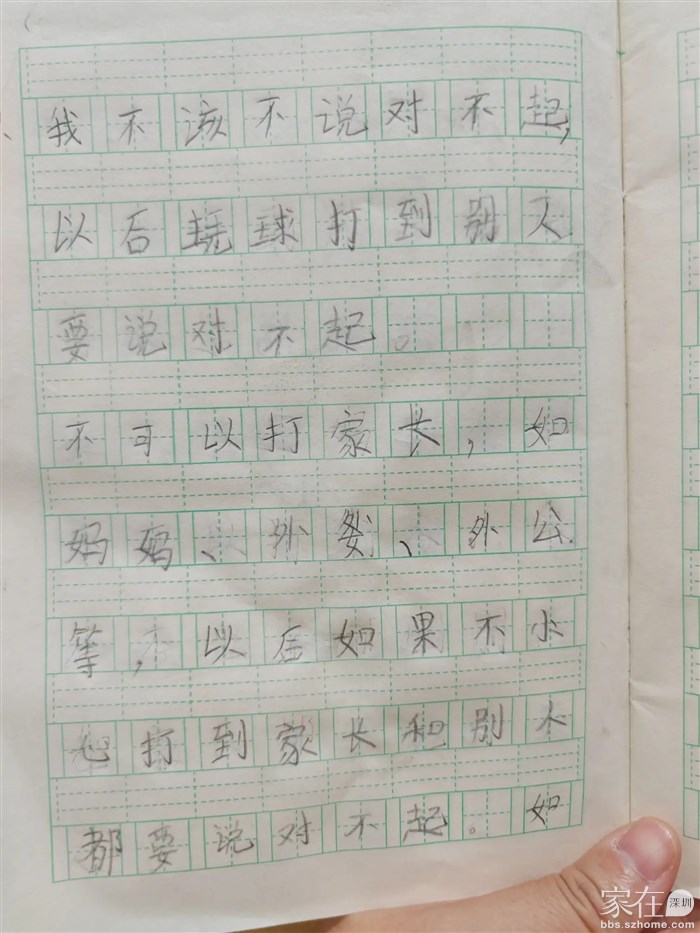 我不该不说对不起，
以后玩球打到别人
要说对不起。
不可以打家长，如
妈妈、外婆、外公
等，以后如果不小
心打到家长和别人
都要说对不起。如
家在深圳
bbs.szhome.com